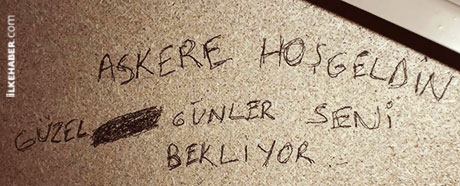 AŞKERE HOŞGELDİN
GÜZEL GÜNLER SENİ
BEKLİYOR
İLKEHABER.com